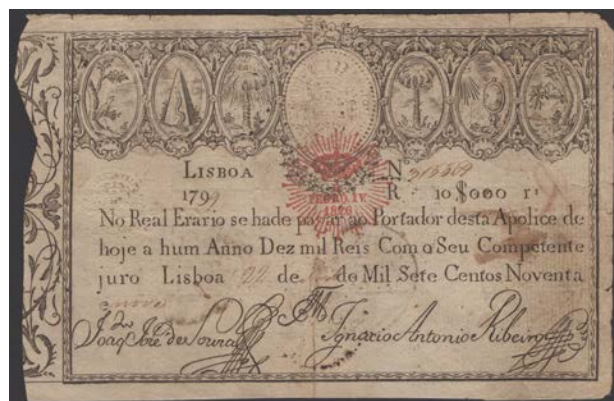 LISBOA
1799
R 10$000 r
PEDRO IV.
1826
No Real Erario se hade pagar ao Portador desta Apolice de
hoje a hum Anno Dez mil Reis Com o Seu Competente
juro Lisboa 22 de de Mil Sete Centos Noventa
e nove
Joaq Jose de Souza
Ignacio Antonio Ribeiro